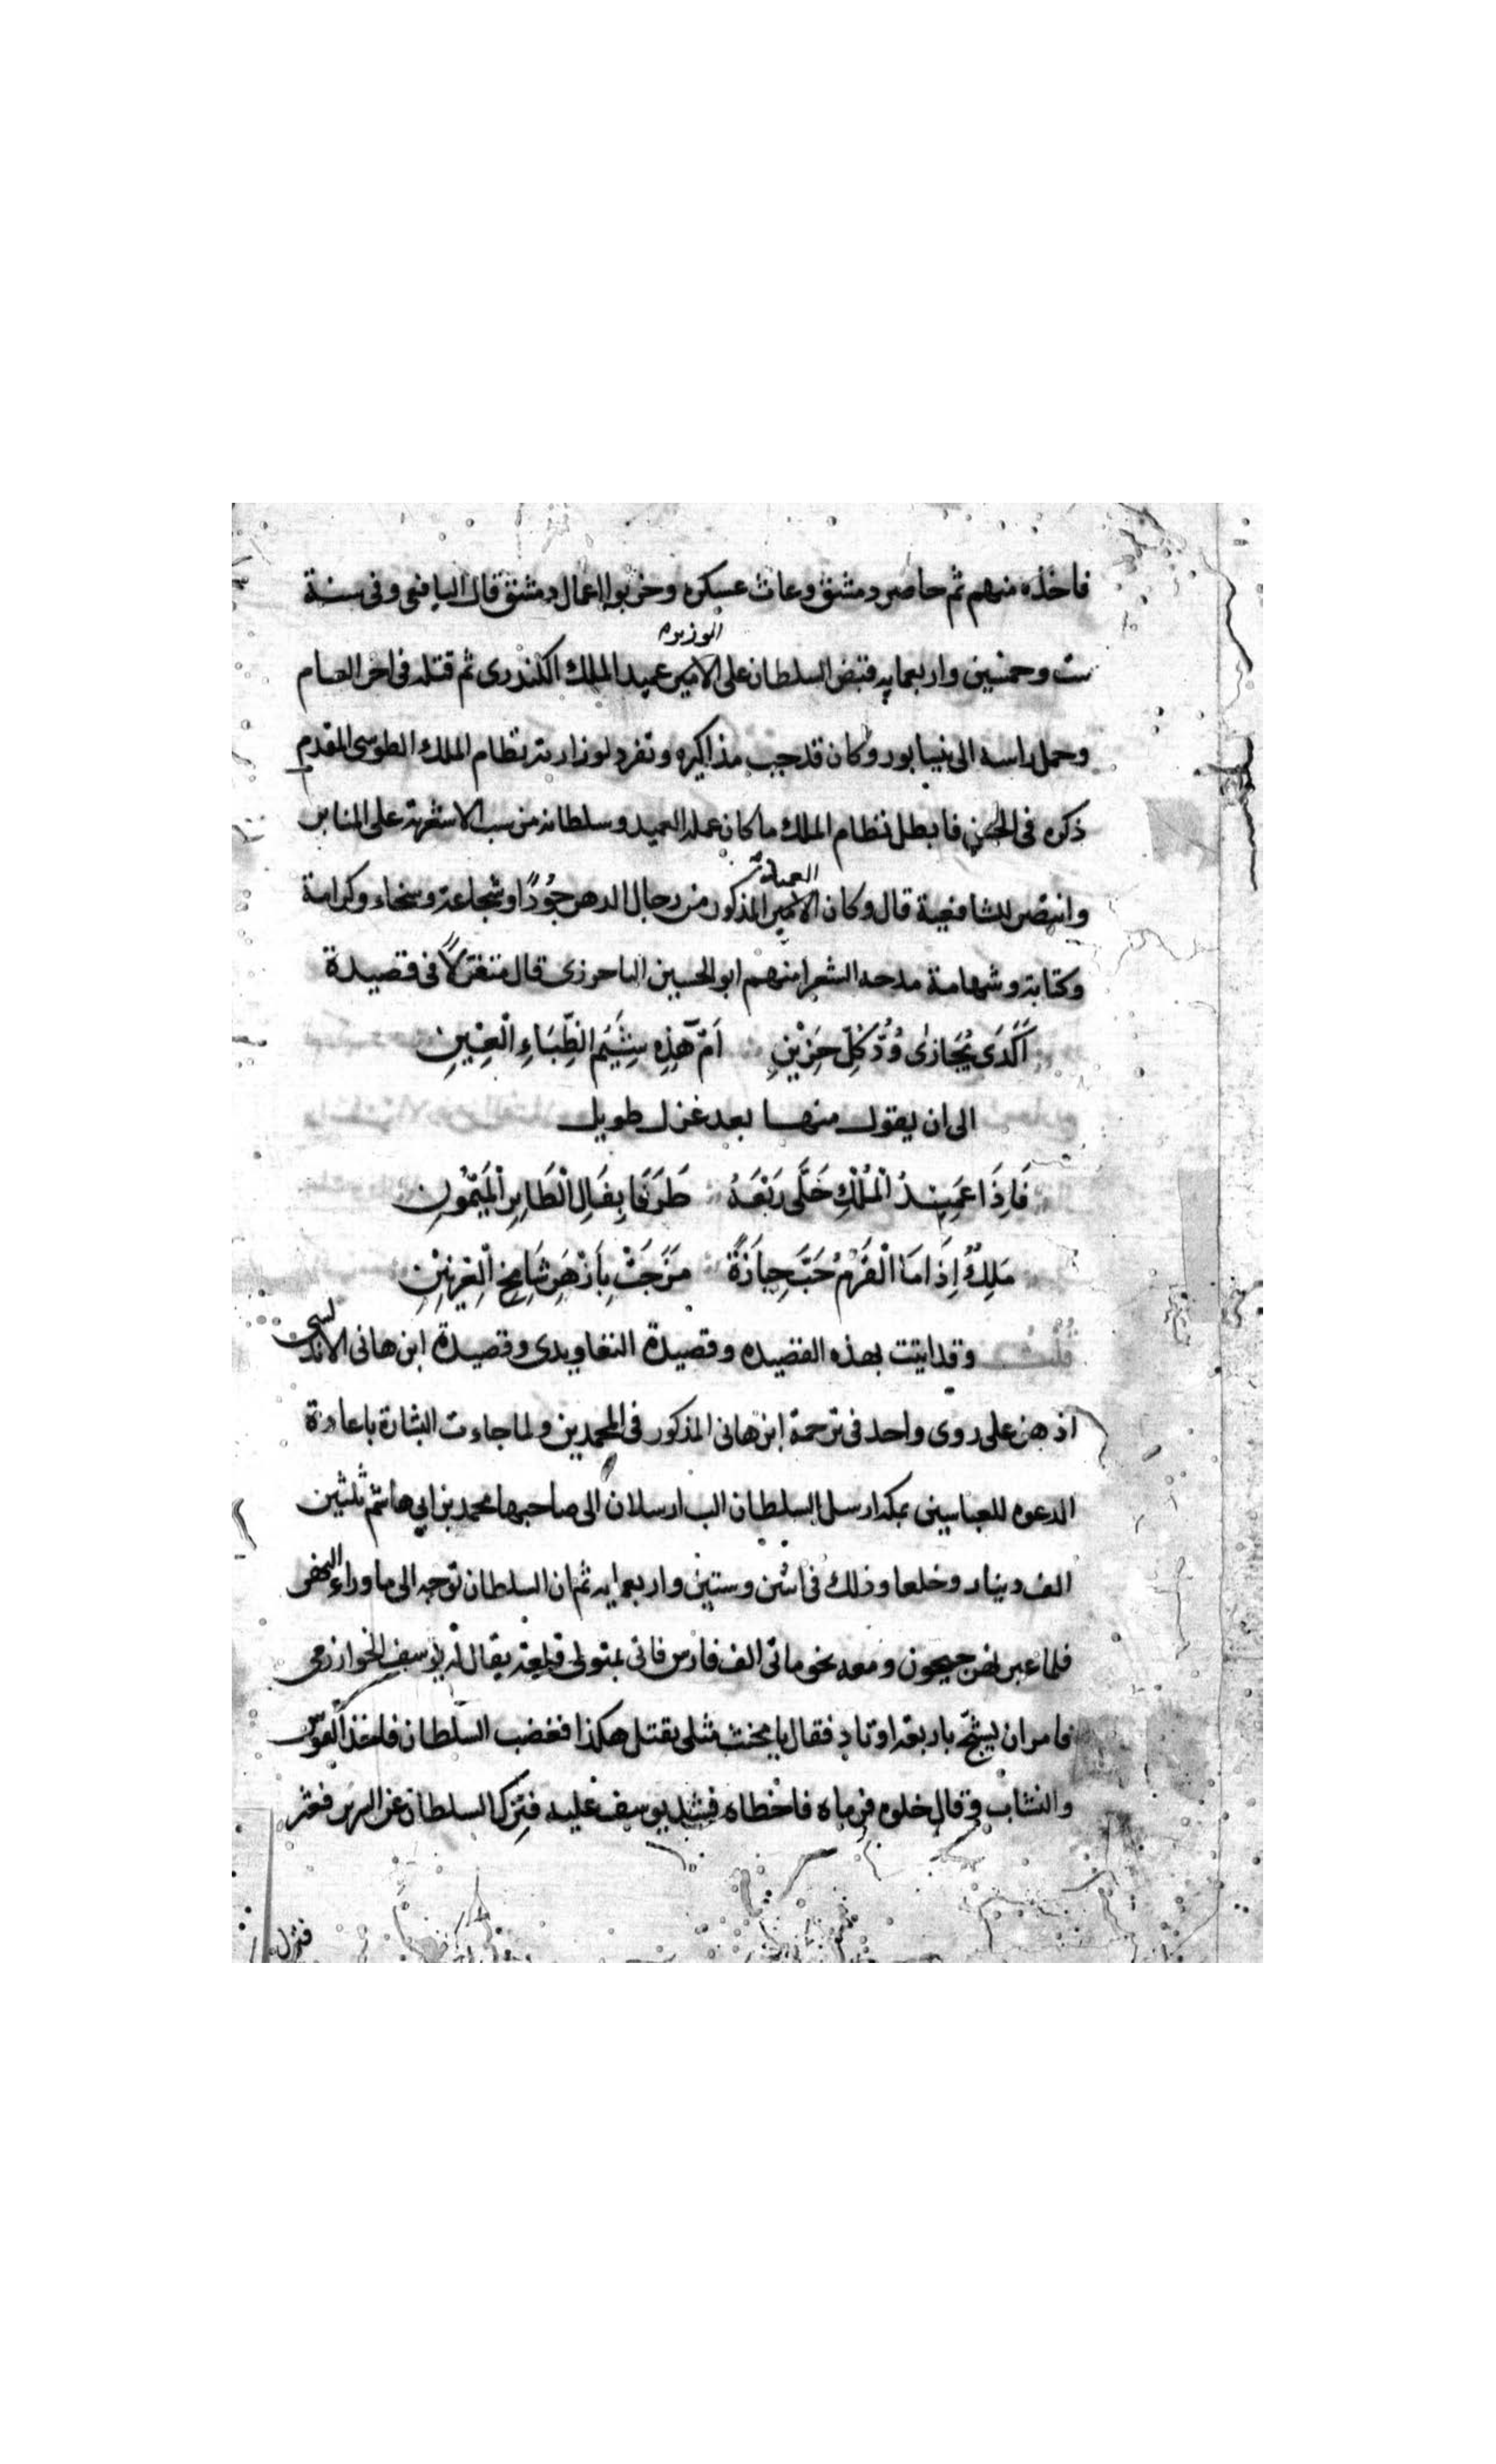 فاخذه منهم ثم حاصر دمشق وعاث عسكره وخربوا اعمال دمشق قال اليافعي وفي سنة
الوزير
ست وخمسين واربعمايه قبض السلطان على الامير عميد الملك الكندري ثم قتله في اخر العام
وحمل راسه الى نيسابور وكان قد جب مذاكيره وتفرد لوزارته نظام الملك الطوسي المقدم
ذكره في فابطل نظام الملك ما كان عمله العميد وسلطانه من سب الاشعرية على المنابر
العميد
وانتصر للشافعية قال وكان الامير المذكور من رجال الدهر جُودًا وشجاعة وسخاء وكرامة
وكتابة وشهامة مدحه الشعرا منهم ابو الحسين الباخرزي قال متغزلاً في قصيدة
اَكَذَى يُجَازى وُدُّ كُلِّ حَزِيْنِ اَمْ هَذِهِ شِيَمُ الظِّبَاءِ الْعِيْنِ
الى ان يقول منها بعد غزل طويل
فَاِذَا عَمِيْدُ الْمُلْكِ حَلَّى رَبْعَهُ طَرَفَا بِفَالِ الْطَايِرِ الْمَيْمُوْنِ
مَلِكٌ اِذَا مَا الْعَزْمُ حَبَّ جِيَادَهُ مَرَّحَتْ بِاَزْهَرَ شَامِخِ الْعِرْنِيْنِ
قُلْتُ وقد اتيت بهذه القصيده وقصيدة التعاويذي وقصيدة ابن هاني الاندلسي
اذ هن على روى واحد في ترجمة ابن هاني المذكور في المحمدين ولما جاءت البشارة باعادة
الدعوه للعباسيين بمكه ارسل السلطان الب ارسلان الى صاحبها محمد بن ابي هاشم ثلثين
الف دينار وخلعا وذلك في اثنين وستين واربعمايه ثم ان السلطان توجه الى ما وراء النهر
فلما عبر نهر جيحون ومعه نحو ماتى الف فارس فاتى بمتولى قلعة يقال له يوسف الخوارزمي
فامر ان يشبح باربعة اوتاد فقال يا مخنث مثلى يقتل هكذا فغضب السلطان فاخذ القوس
والنشاب وقال خلوه فرماه فاخطاه فشد يوسف عليه فترك السلطان عن السرير فعثر
فنزل